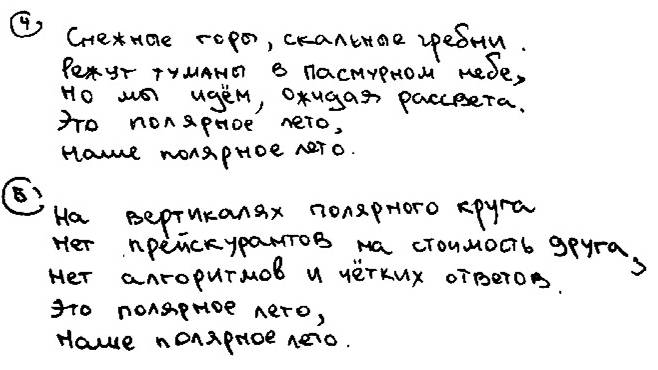 4
Снежные горы, скальные гребни.
Режут туманы в пасмурном небе,
Но мы идём, ожидая рассвета.
Это полярное лето,
Наше полярное лето.
5
На вертикалях полярного круга
Нет прейскурантов на стоимость друга,
Нет алгоритмов и чётких ответов.
Это полярное лето,
Наше полярное лето.